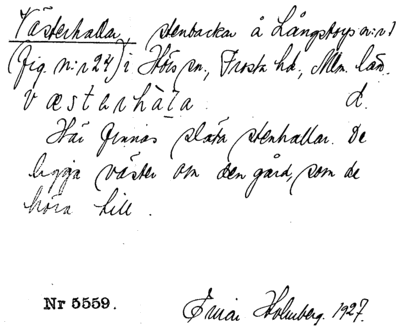 Västerhallar, stenbackar å Långstorps n:r 1
(fig. n:r 24) i Hörs sn, Frosta hd, Mlm. län.
væsterhala d.
Här finnas släta stenhallar. De
ligga väster om den gård, som de
höra till.
Nr 5559. Holmberg. 1927.